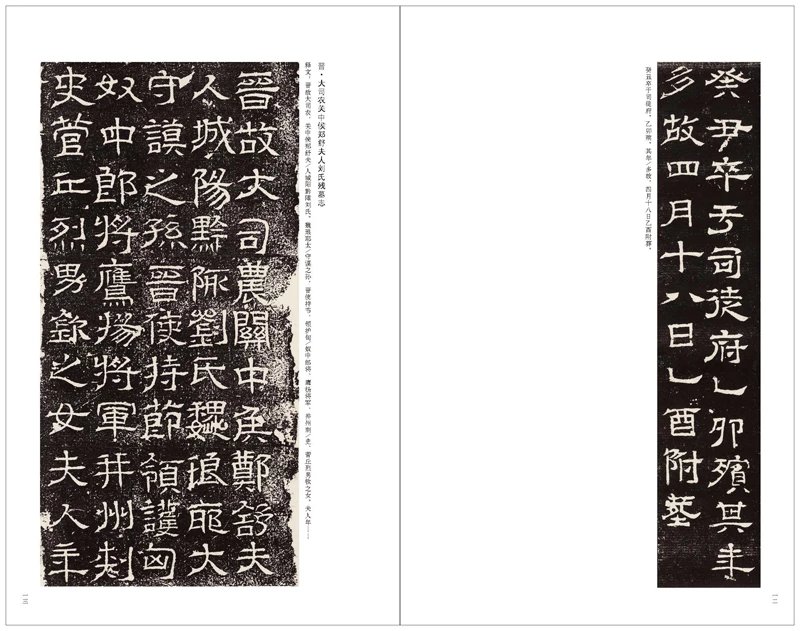 癸丑卒于司徒府乙卯殯其年
多故四月十八日乙酉附葬
癸丑卒于司徒府，乙卯殡，其年／多故，四月十八日乙酉附葬。
一二
晋·大司农关中侯郑舒夫人刘氏残墓志
释文：晋故大司农、关中侯郑舒夫／人城阳黔陬刘氏，魏琅琊太／守谟之孙，晋使持节、领护匈／奴中郎将、鹰扬将军、并州刺／史、菅丘烈男钦之女，夫人年……
晉故大司農關中侯鄭舒夫
人城陽黔陬劉氏魏琅耶大
守謨之孫晉使持節領護匈
奴中郎將鷹揚將軍并州刺
史菅丘烈男欽之女夫人年
一三